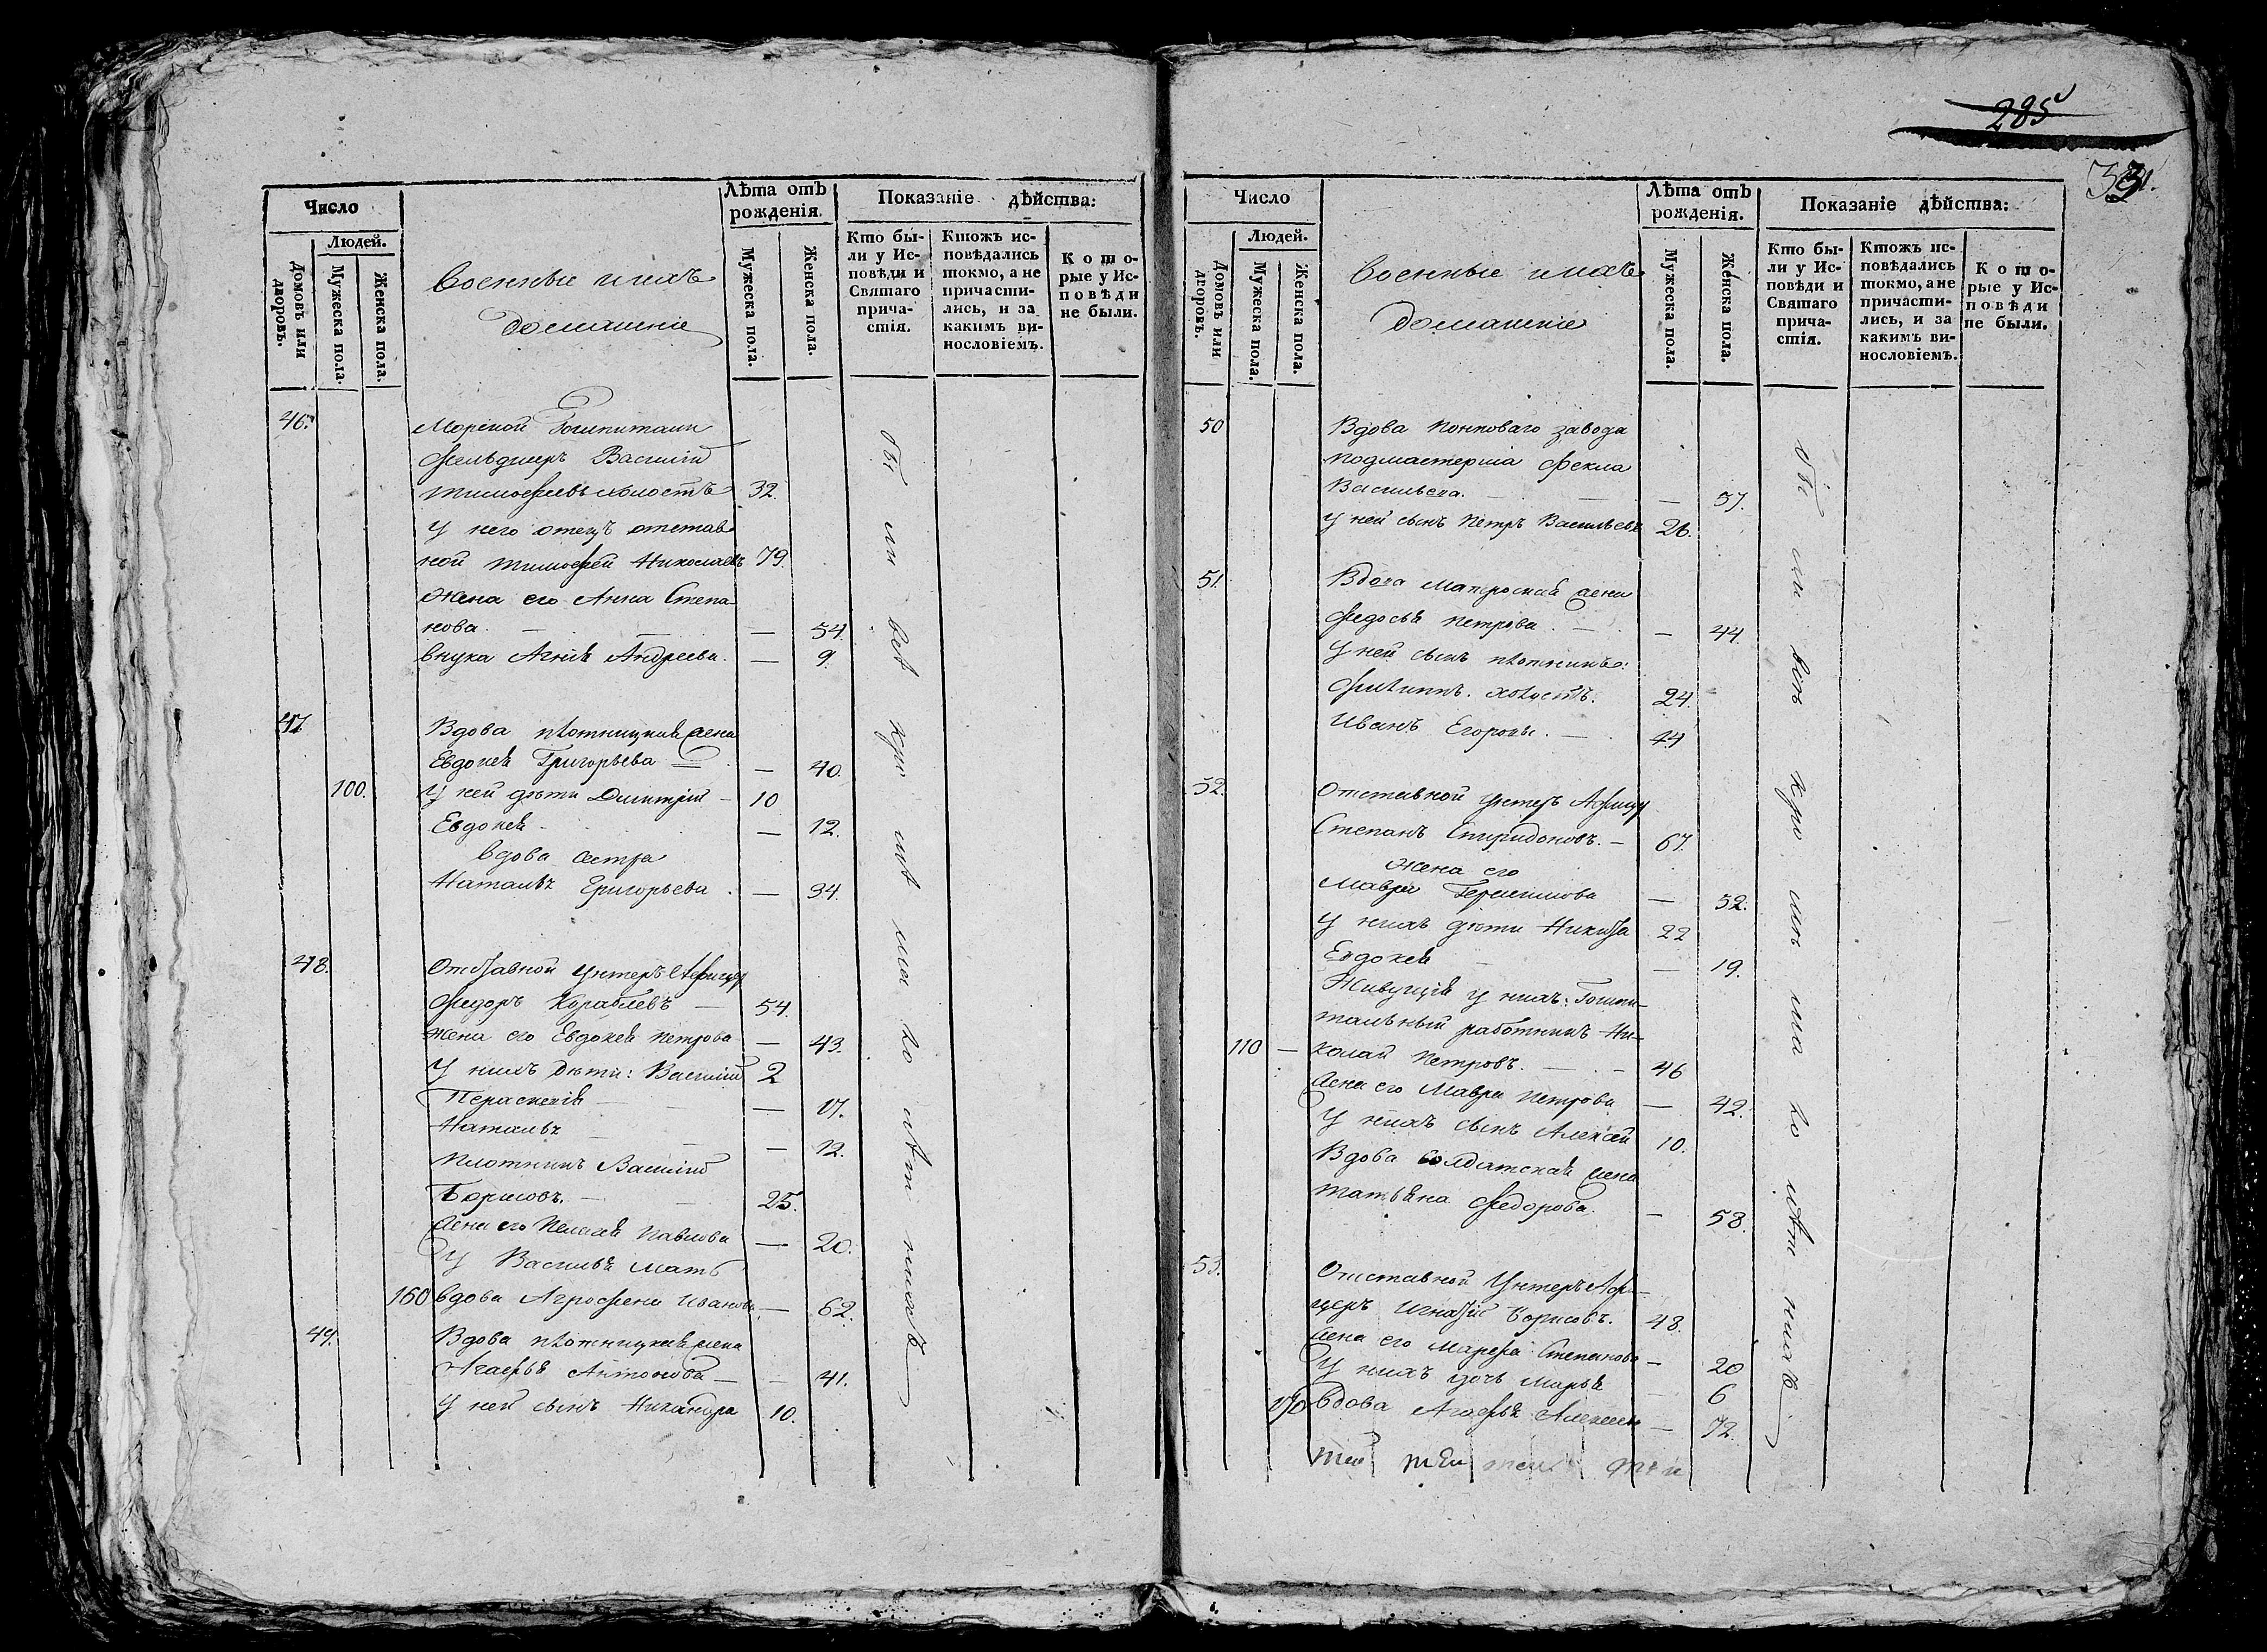 Число
Людей.
Домовъ или дворовъ.
Мужеска пола.
Женска пола.
Военные и ихъ
домашніе
Лѣта отъ рожденія.
Мужеска пола.
Женска пола.
Показаніе дѣйства:
Кто бы-
ли у Ис-
повѣди и
Святаго
прича-
стія.
Ктожъ ис-
повѣдались
токмо, а не
причасти-
лись, и за
какимъ ви-
нословіемъ.
Кото-
рые у Ис-
повѣди
не были.
46. Морской Гошпитали
фельдшеръ Василій
Тимофеевъ холостъ 32.
у него отецъ отстав
ной Тимофей Николаевъ 79.
Жена его Анна Степа-
нова. — — 54.
внука Агнія Андреева. — 9.
47 Вдова плотницкая жена
Евдокея Григорьева — 40.
100. у ней дети Дмитрій — 10
Евдокея — 12.
вдова сестра
Наталья Григорьева — 34.
48. Отставной унтеръ Афицер
Федоръ Кораблевъ — 54.
жена его Евдокея Петрова — 43.
у нихъ дети: Василий 2
Пераскевія — 17.
Наталья — 12.
Плотникъ Василій
Борисовъ. — 25.
жена его Пелагея Павлова — 20.
у Василья мать
160 вдова Агрофена Иванова — 62.
49. Вдова плотницкая жена
Агафья Антонова — 41.
у ней сынъ Никандра 10.
285
Число
Людей.
Домовъ или дворовъ.
Мужеска пола.
Женска пола.
Военные и ихъ
домашніе
Лѣта отъ рожденія.
Мужеска пола.
Женска пола.
Показаніе дѣйства:
Кто бы-
ли у Ис-
повѣди и
Святаго
прича-
стія.
Ктожъ ис-
повѣдались
токмо, а не
причасти-
лись, и за
какимъ ви-
нословіемъ.
Кото-
рые у Ис-
повѣди
не были.
50 Вдова
завода
подмастерша Фекла
Васильева. —
у ней сынъ Петръ Васильевъ 26.
51. Вдова Матроская жена
Федосья Петрова. — 44.
у ней сынъ плотникъ:
Филиппъ. холостъ. 24.
Иванъ Егоровы.
52. Отставной унтеръ Афицер
Степанъ Спиридоновъ. — 67.
жена его
Мавра Герасимова — 52.
у нихъ дети Никита 22
Евдокея — 19.
Живущія у нихъ: Гошпи-
тальный работникъ Ни-
110 — колай Петровъ. — 46
жена его Мавра Петрова — 42.
у нихъ сынъ Алексей 10.
Вдова солдатская жена
Татьяна Федорова. — 58.
53. Отставной Унтеръ Афи-
церъ Игнатій Борисовъ. 48.
жена его Марфа Степанова — 20
у нихъ дочь Марья — 6
170 вдова Агафья Алексеева — 72.